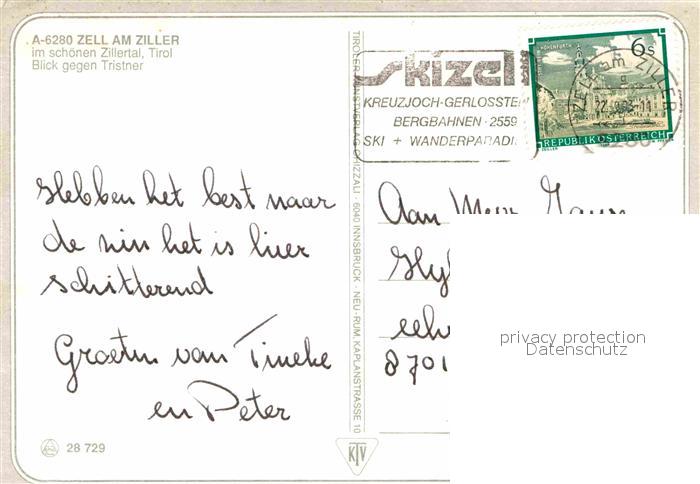 A-6280 ZELL AM ZILLER
im schönen Zillertal, Tirol
Blick gegen Tristner
Hebben het best naar
de zin het is hier
schitterend
Groeten van Tineke
en Peter
28 729
TIROLER KUNSTVERLAG CHIZZALI · 6040 INNSBRUCK · NEU-RUM, KAPLANSTRASSE 10
KTV
skizell
KREUZJOCH-GERLOSSTEIN
BERGBAHNEN · 2559
SKI + WANDERPARADIES
HOHENFURTH
6 S
REPUBLIK ÖSTERREICH
ZELL am ZILLER
6280
Aan
8701
privacy protection
Datenschutz